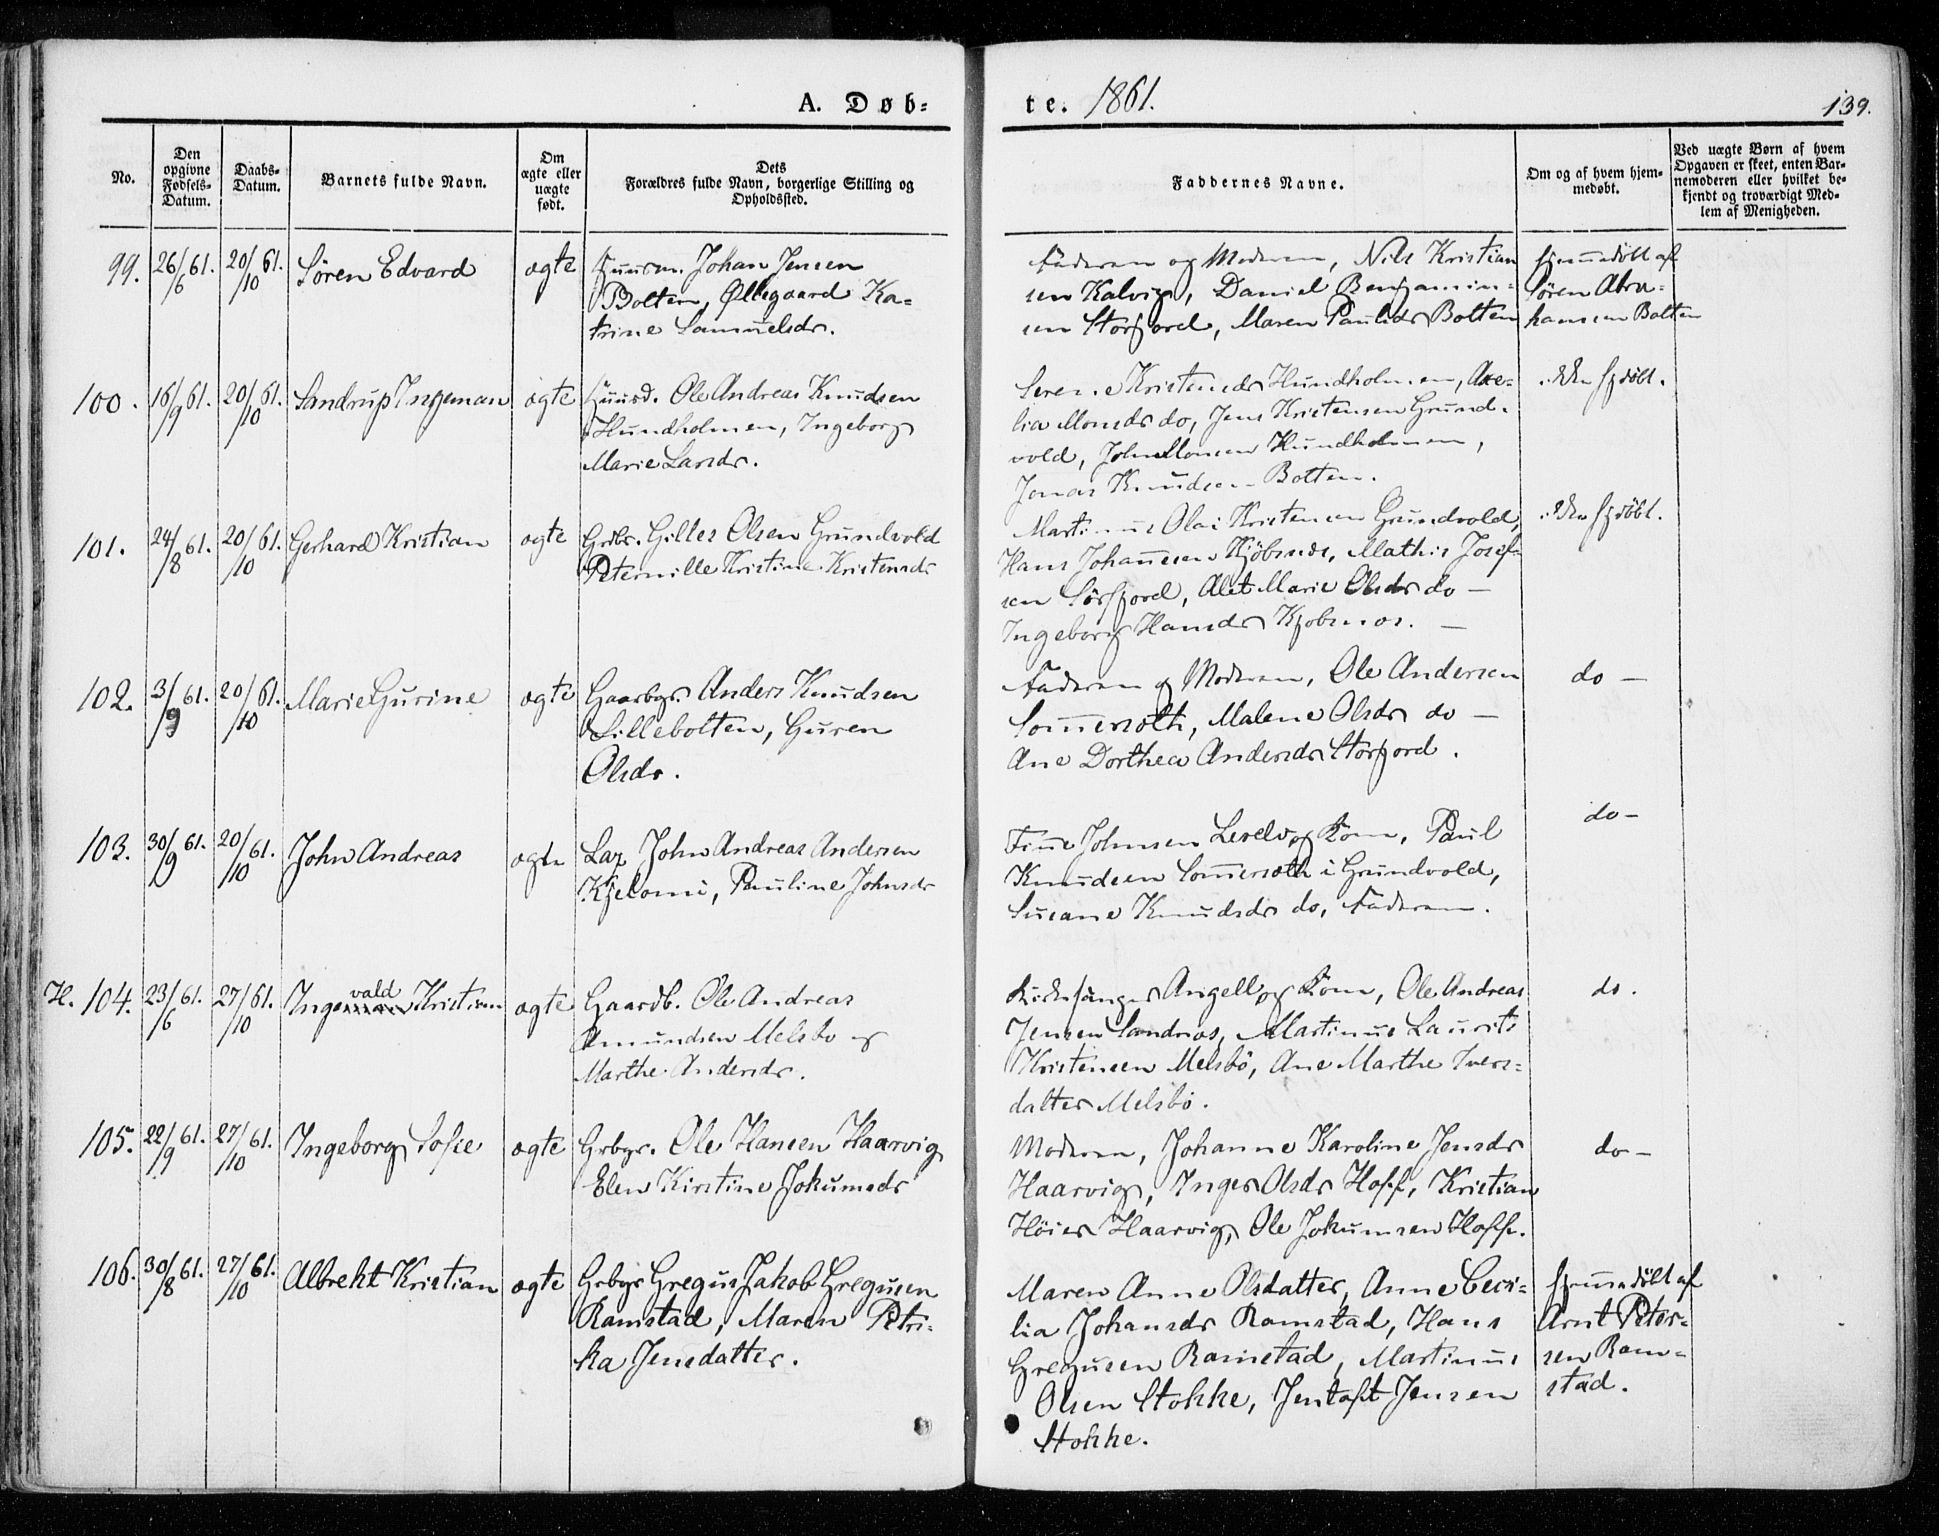 A. Døb- te. 1861.
139.
No.
Den opgivne Fødsels-Datum.
Daabs-Datum.
Barnets fulde Navn.
Om ægte eller uægte født.
Dets Forældres fulde Navn, borgerlige Stilling og Opholdssted.
Faddernes Navne.
Om og af hvem hjemmedøbt.
Ved uægte Børn af hvem Opgaven er skeet, enten Barnemoderen eller hvilket bekjendt og troværdigt Medlem af Menigheden.
99. 26/6 61. 20/10 61. Søren Edvard ægte Huusm. Johan Jensen
Bolten, Øllegaard Ka-
trine Samuelsdr.
Faderen og Moderen, Nils Kristian
sen Kalvig, Daniel Benjamin-
sen Storfjord, Maren Paulsdr Bolten
Hjemmedöbt af
Sören Abra-
hamsen Bolten
100. 16/9 61. 20/10 61. Sandrup Ingeman ægte Ole Andreas Knudsen
Hundholmen, Ingeborg
Marie Larsdr.
Serene Kristensdr Hundholmen, Axe-
lia Monsdr do, Jens Kristensen Grund-
vold, John Monsen Hundholmen,
Jonas Knudsen Bolten.
ikke hjdöbt.
101. 24/8 61. 20/10 61. Gerhard Kristian ægte Grdbr. Gilles Olsen Grundvold
Peternille Kristine Kristensdr
Martinus Olai Kristensen Grundvold,
Hans Johannesen Kjöbsnæs, Mathis Josef-
sen Sörfjord, Alet Marie Olsdr do —
Ingeborg Hansdr Kjobsnæs. —
ikke hjdöbt.
102. 3/9 61. 20/10 61. Marie Gurine ægte Gaarbgr. Anders Knudsen
Lillebolten, Guren
Olsdr.
Faderen og Moderen, Ole Andersen
Sommersæth, Malene Olsdr do —
Ane Dorthea Andersdr Storfjord.
do —
103. 30/9 61. 20/10 61. John Andreas ægte Lap John Andreas Andersen
Kjelomi, Pauline Johnsdr
Finne Johnsen og Kone, Paul
Knudsen Sommersæth i Grundvold,
Susane Knudsdr do, Faderen.
do —
H. 104. 23/6 61. 27/10 61. Ingevald Kristian ægte Gaardb. Ole Andreas
Amundsen Melsbo og
Marthe Andersdr.
Kirkesanger Angell og Kone, Ole Andreas
Jensen Sandnæs, Martinus Laurits
Kristensen Melsbö, Ane Marthe Ivers-
datter Melsbö.
do.
105. 22/9 61. 27/10 61. Ingeborg Sofie ægte Grbgr. Ole Hansen Haarvig
Elen Kirstine Jokumsdr
Moderen, Johanne Karoline Jensdr
Haarvig, Inger Olsdr Hoff, Kristian
Höier Haarvig, Ole Jokumsen Hoff.
do —
106. 30/8 61. 27/10 61. Albreht Kristian ægte Grbgr Gregus Jakob Gregusen
Ramstad, Maren Petri-
ka Jensdatter.
Maren Anne Olsdatter, Anne Ceci-
lia Johansdr Ramstad, Hans
Gregusen Ramstad, Martinus
Olsen Stokke, Jentoft Jensen
Stokke.
Hjemmedöbt af
Arnt Peter-
sen Ram-
stad.